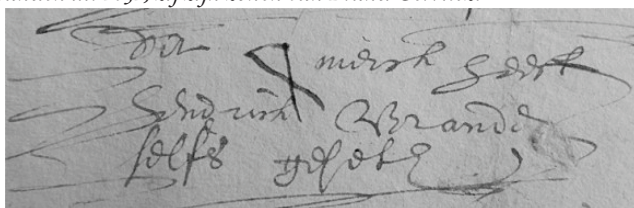 Dit merck heeft
hendrick Brands
selfs geset